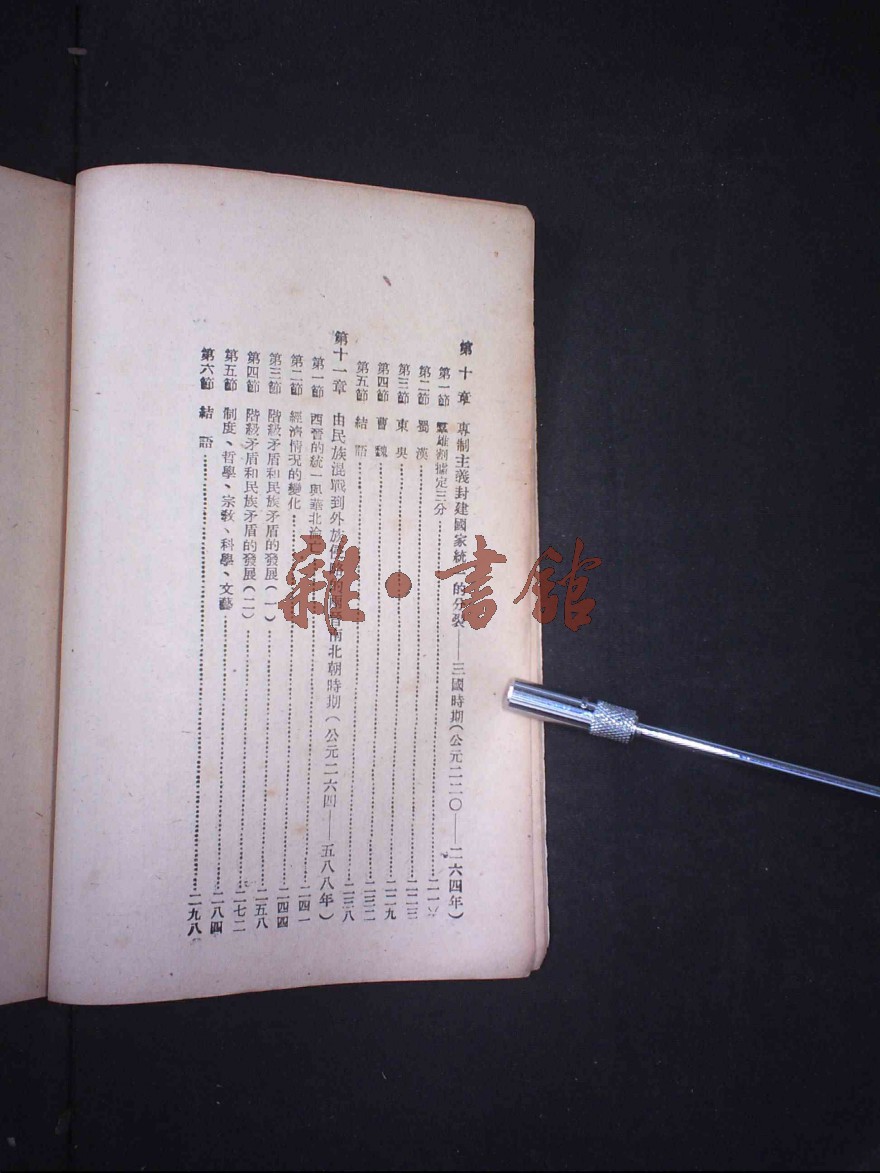 第十章 專制主義封建國家統一的分裂——三國時期(公元二二〇——二六四年)
第一節 羣雄割據定三分…………二一六
第二節 蜀漢…………二二三
第三節 東吳…………二二九
第四節 曹魏…………二三二
第五節 結語…………二三八
第十一章 由民族混戰到外族侵 的兩晉南北朝時期(公元二六四——五八八年)
第一節 西晉的統一與華北淪 …………二四一
第二節 經濟情況的變化…………二四四
第三節 階級矛盾和民族矛盾的發展(一)…………二五八
第四節 階級矛盾和民族矛盾的發展(二)…………二七二
第五節 制度、哲學、宗敎、科學、文藝…………二八四
第六節 結語…………二九八
雜·書館